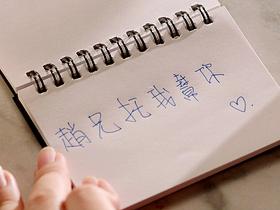 趙兄托我幫你♡.